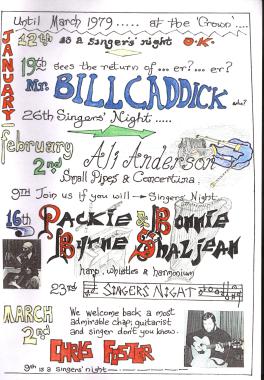 Until March 1979 ..... at the 'Crown'....
JANUARY
12th is a singers' night O.K.
19th sees the return of ... er? ... er?
Mr. BILL CADDICK
who?
26th Singers' Night .....
february
2nd Ali Anderson
Small Pipes & Concertina.
9TH Join us if you will → Singers Night
16th Packie & Bonnie
Byrne Shaljean
harp, whistles & harmonium
23rd SINGERS NIGHT
MARCH
2nd
We welcome back a most
admirable chap, guitarist
and singer don't you know.
CHRIS FOSTER
9th is a singers' night